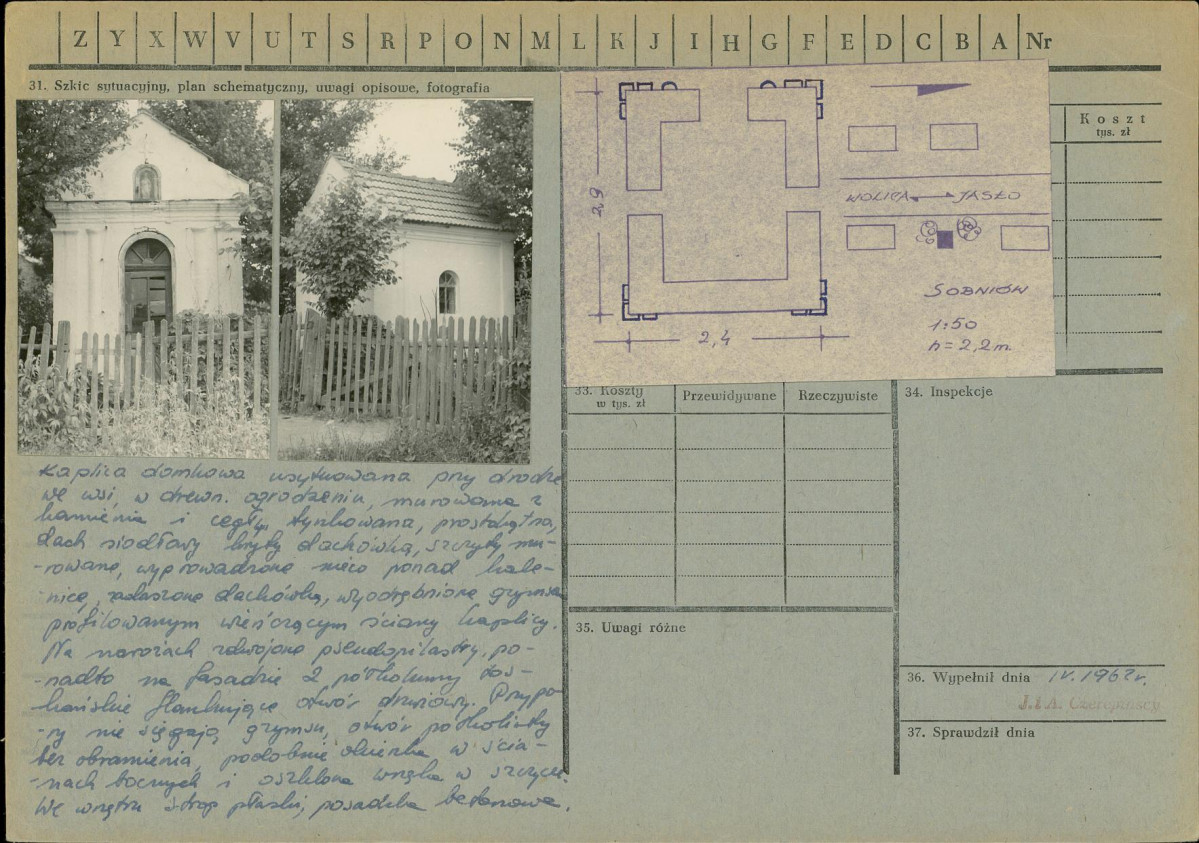 Z Y X W V U T S R P O N M L K J I H G F E D C B A Nr
31. Szkic sytuacyjny, plan schematyczny, uwagi opisowe, fotografia
Koszt
tys. zł
2,9
2,4
WOLICA JASŁO
SOBNIÓW
1:50
h=2,2m
Kaplica domkowa usytuowana przy drodze
we wsi, w drewn. ogrodzeniu, murowana z
kamienia i cegły, tynkowana, prostokątna,
dach siodłowy kryty dachówką, szczyty mu-
-rowane, wyprowadzone nieco ponad kale-
-nicę, zadaszone dachówką, wyodrębnione gzymsem
profilowanym wieńczącym ściany kaplicy.
Na narożach zdwojone pseudopilastry, po-
-nadto na fasadzie 2 półkolumny tos-
kańskie flankujące otwór drzwiowy. Przypo-
-ry nie sięgają gzymsu, otwór półkolisty
bez obramienia, podobnie okienka w ścia-
-nach bocznych i oszklona wnęka w szczycie.
We wnętrzu strop płaski, posadzka betonowa.
33. Koszty
w tys. zł
Przewidywane
Rzeczywiste
34. Inspekcje
35. Uwagi różne
36. Wypełnił dnia IV. 1962 r.
J. i A.
37. Sprawdził dnia